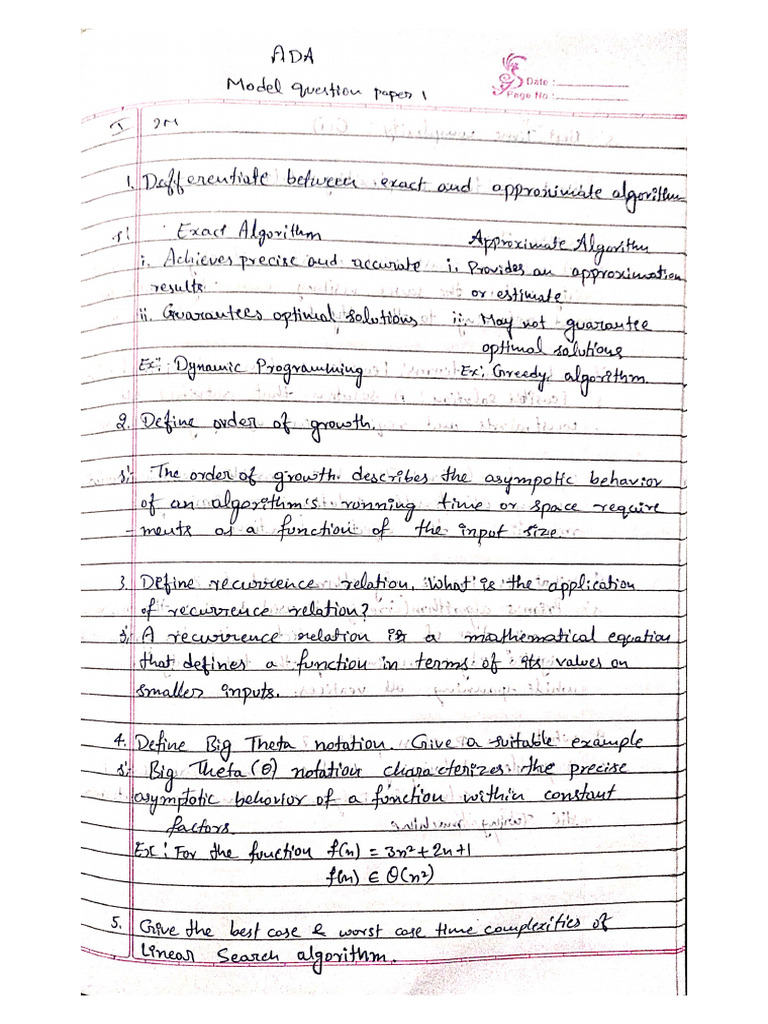 ADA
Model question paper 1
Date :
Page No :
I 2M
1. Defferentiate between exact and approximate algorithm
s: Exact Algorithm Approximate Algorithm
i. Achieves precise and accurate i. Provides an approximation
results or estimate
ii. Guarantees optimal solutions ii. May not guarantee
optimal solutions
Ex: Dynamic Programming Ex: Greedy algorithm.
2. Define order of growth.
s: The order of growth describes the asympotic behavior
of an algorithm's running time or space require
-ments as a function of the input size.
3. Define recurrence relation. What is the application
of recurrence relation?
s: A recurrence relation is a mathematical equation
that defines a function in terms of its values on
smaller inputs.
4. Define Big Theta notation. Give a suitable example
s: Big Theta (θ) notation characterizes the precise
asymptotic behavior of a function within constant
factors.
Ex: For the function f(n) = 3n²+2n+1
f(n) ∈ θ(n²)
5. Give the best case & worst case time complexities of
Linear Search algorithm.